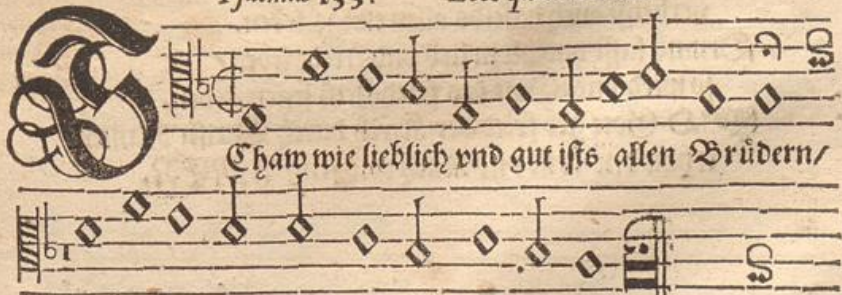 SChaw wie lieblich vnd gut ists allen Brüdern/